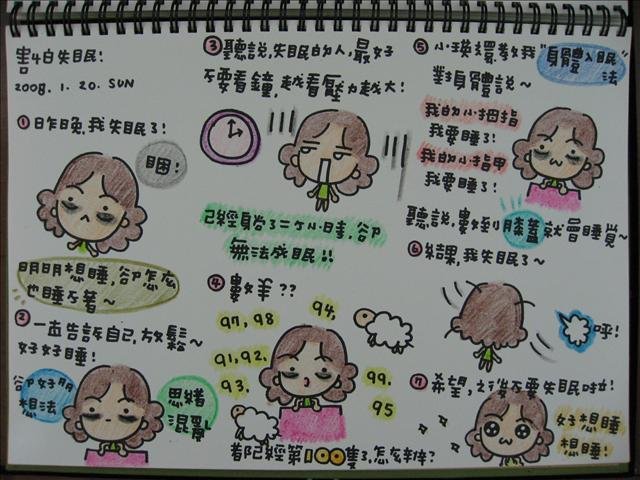 害怕失眠!
2008.1.20.SUN
①昨晚,我失眠了!
睏!
明明想睡,卻怎么
也睡不著~
②一直告訴自己,放鬆~
好好睡!
卻好多
想法
思緒
混亂
③聽說,失眠的人,最好
不要看鐘,越看壓力越大!
已經身尚了二个小時,卻
無法成眠!!
④數羊??
97,98
94.
91,92.
93.
99.
95
都已經第100隻了,怎么辦?
⑤小瑛還教我"身體入眠
法
對身體說~
我的小拇指
我要睡了!
我的小指甲
我要睡了!
聽說,數到膝蓋就會睡覺~
⑥結果,我失眠了~
呼!
⑦希望,之後不要失眠啦!
好想睡
想睡!